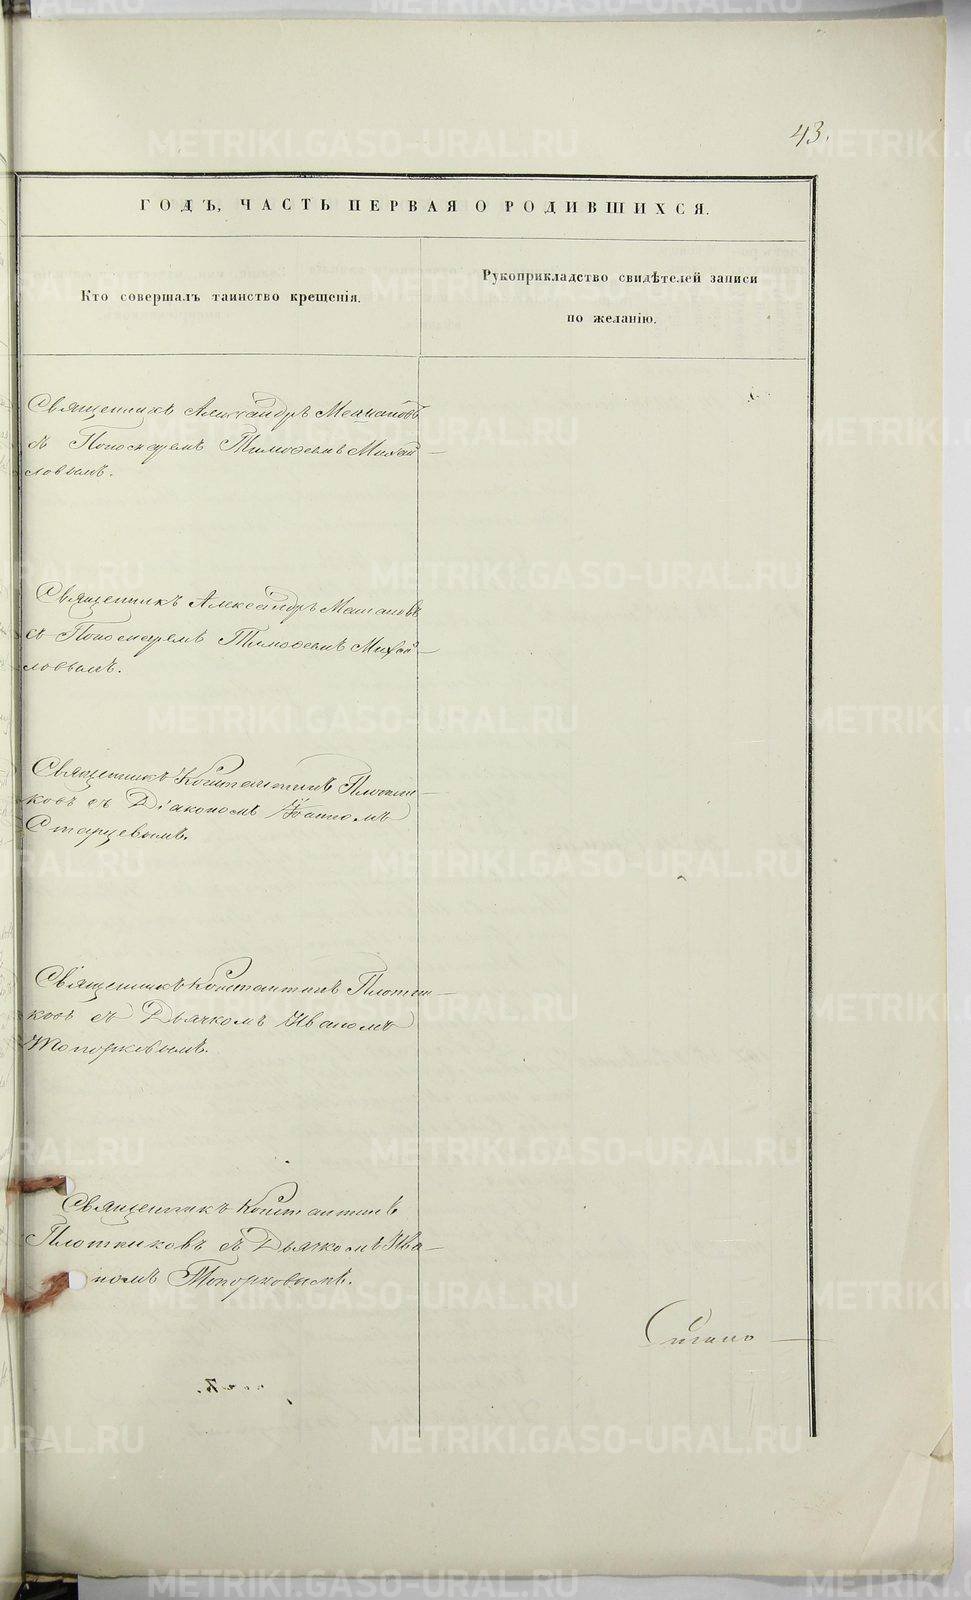 43.
ГОДЪ, ЧАСТЬ ПЕРВАЯ О РОДИВШИХСЯ.
Кто совершалъ таинство крещенія.
Рукоприкладство свидѣтелей записи
по желанію.
Священникъ Александръ
съ Пономаремъ Тимофеемъ Михай-
ловымъ.
Священникъ Александръ
съ Пономаремъ Тимофеемъ Михай-
ловымъ.
Священникъ Константинъ Плотни-
ковъ съ Діакономъ Іоанномъ
Старцевымъ.
Священникъ Константинъ Плотни-
ковъ съ Дьячкомъ Иваномъ
Топорковымъ.
Священникъ Константинъ
Плотниковъ съ Дьячкомъ Ива-
номъ Топорковымъ.
METRIKI.GASO-URAL.RU